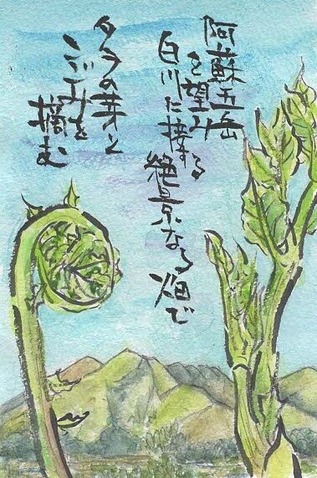 阿蘇五岳
を望み
白川に接する
絶景なる畑で
タラの芽と
こごみを
摘む